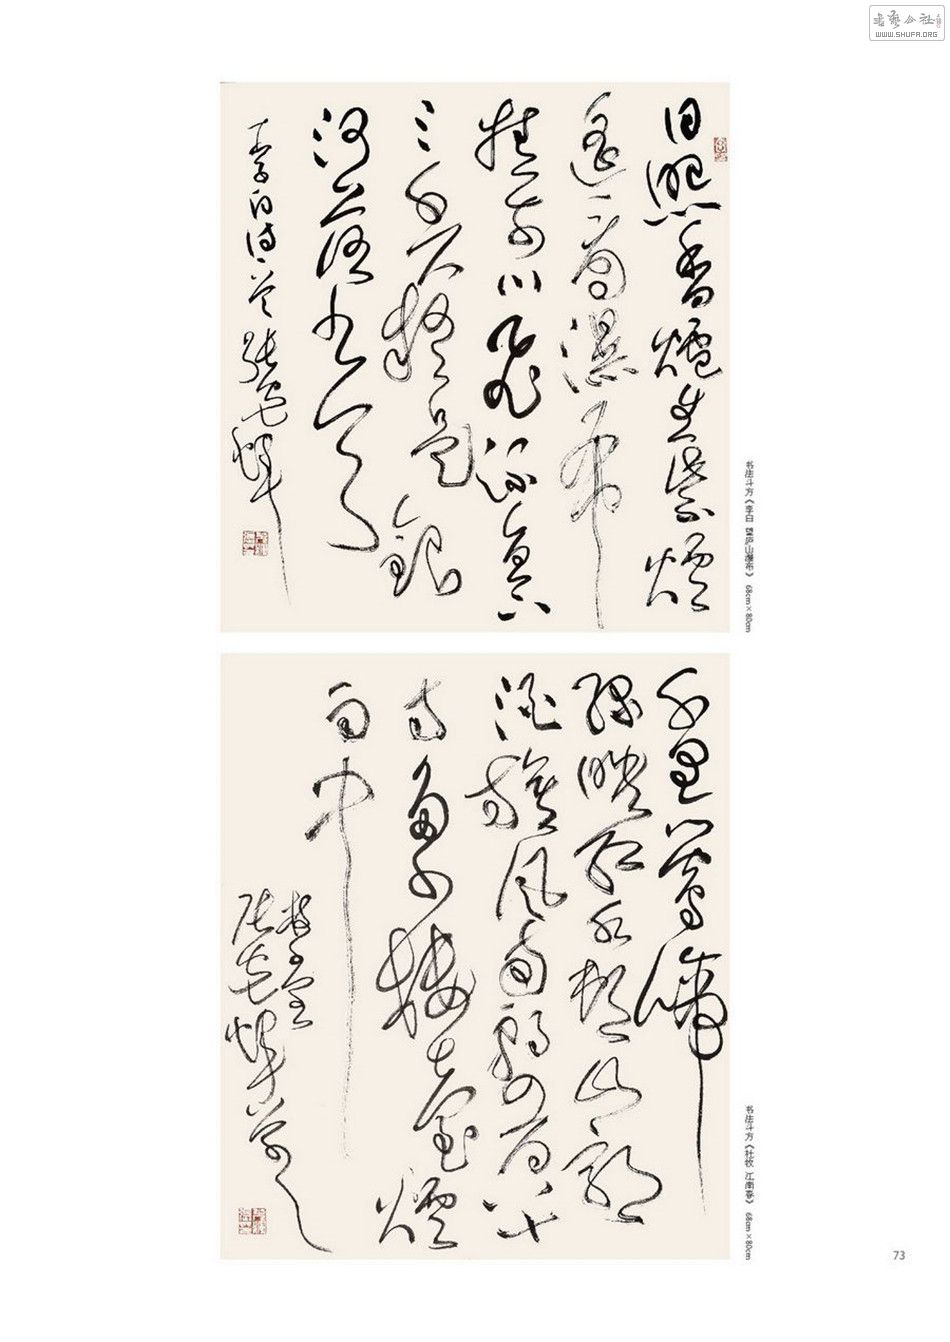 書藝公社
WWW.SHUFA.ORG
日照香爐生紫煙
遙看瀑布
挂前川飛流直下
三千尺疑是銀
河落九天
李白詩
书法斗方《李白 望庐山瀑布》 68cm×80cm
千里鶯啼
綠映紅水村山郭
酒旗風南朝四百八十
寺多少樓臺煙
雨中
书法斗方《杜牧 江南春》 68cm×80cm
73